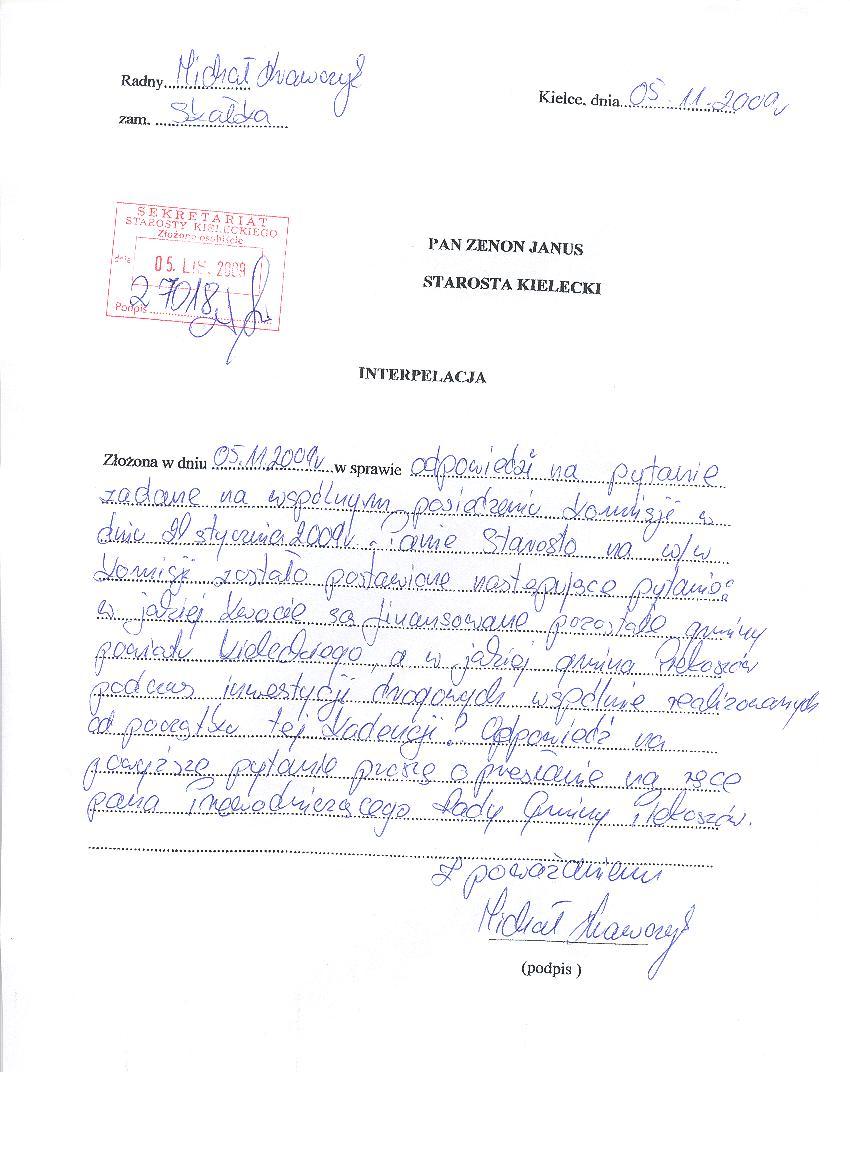 Radny Michał Krawczyk
Kielce, dnia 05.11.2009r
zam. Skałka
SEKRETARIAT
STAROSTY KIELECKIEGO
Złożono osobiście
dnia 05. LIS. 2009
27018
Podpis
PAN ZENON JANUS
STAROSTA KIELECKI
INTERPELACJA
Złożona w dniu 05.11.2009r w sprawie odpowiedź na pytanie
zadane na wspólnym posiedzeniu Komisji w
dniu stycznia 2009r. Panie Starosto na w/w
Komisji zostało postawione następujące pytanie:
w jakiej kwocie są finansowane pozostałe gminy
powiatu Kieleckiego, a w jakiej gmina Piekoszów
podczas inwestycji drogowych wspólnie realizowanych
od początku tej kadencji? Odpowiedź na
powyższe pytanie proszę o przesłanie na ręce
pana Przewodniczącego Rady Gminy Piekoszów.
Z poważaniem
Michał Krawczyk
(podpis )